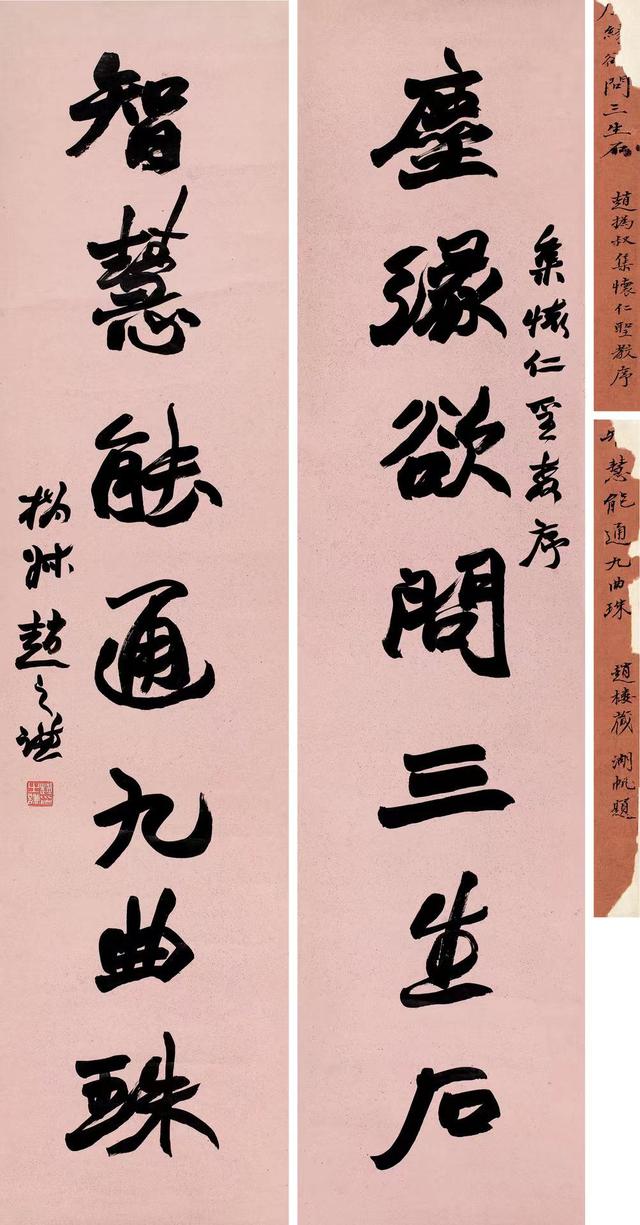 集懷仁聖教序
塵緣欲問三生石
智慧能通九曲珠
撝叔趙之謙
緣欲問三生石
趙撝叔集懷仁聖教序
慧能通九曲珠
趙棲藏 湖帆題